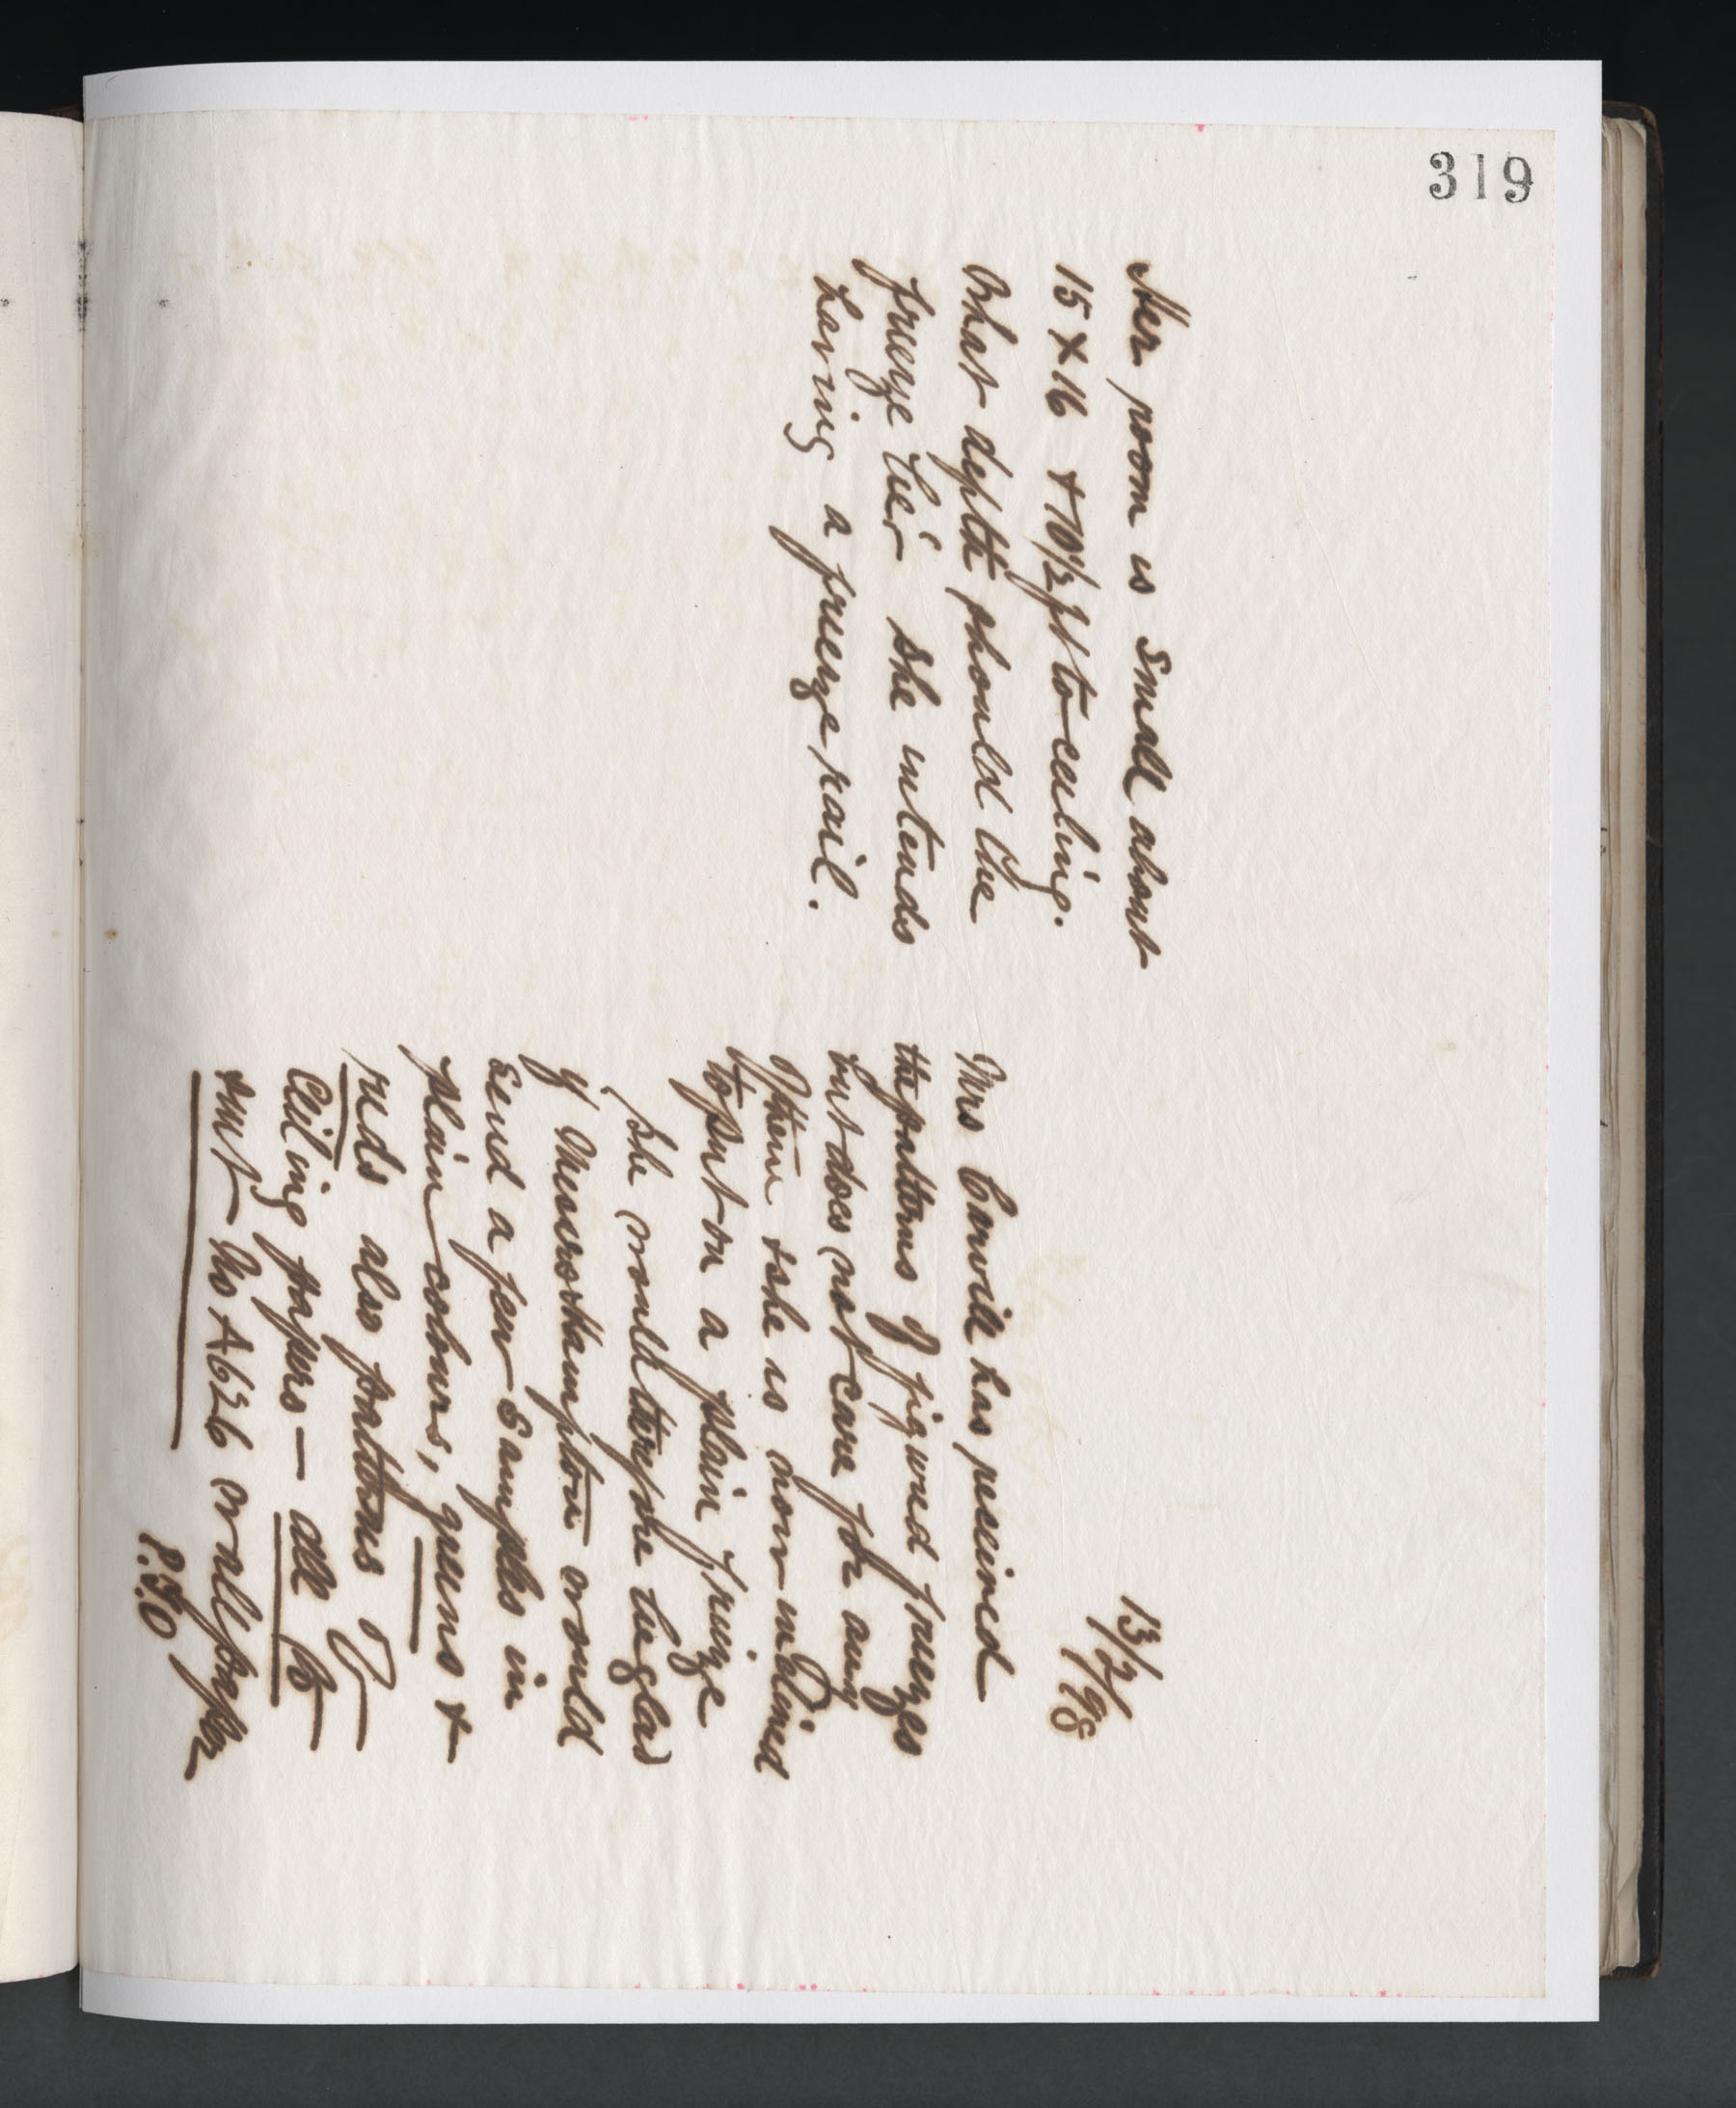 319
13/2/98
Mrs Carvill has received
the patterns of figured friezes
but does not care for any
of them & she is now inclined
to put on a plain frieze
She would therefore be glad
if Messrs Hampton would
send a few samples in
plain colours, greens &
reds also patterns of
Ceiling papers — all to
suit No A636 wall paper
P.T.O
Her room is small about
15 x 16 & 10½ ft to ceiling.
What depth should the
frieze be? she intends
having a frieze rail.